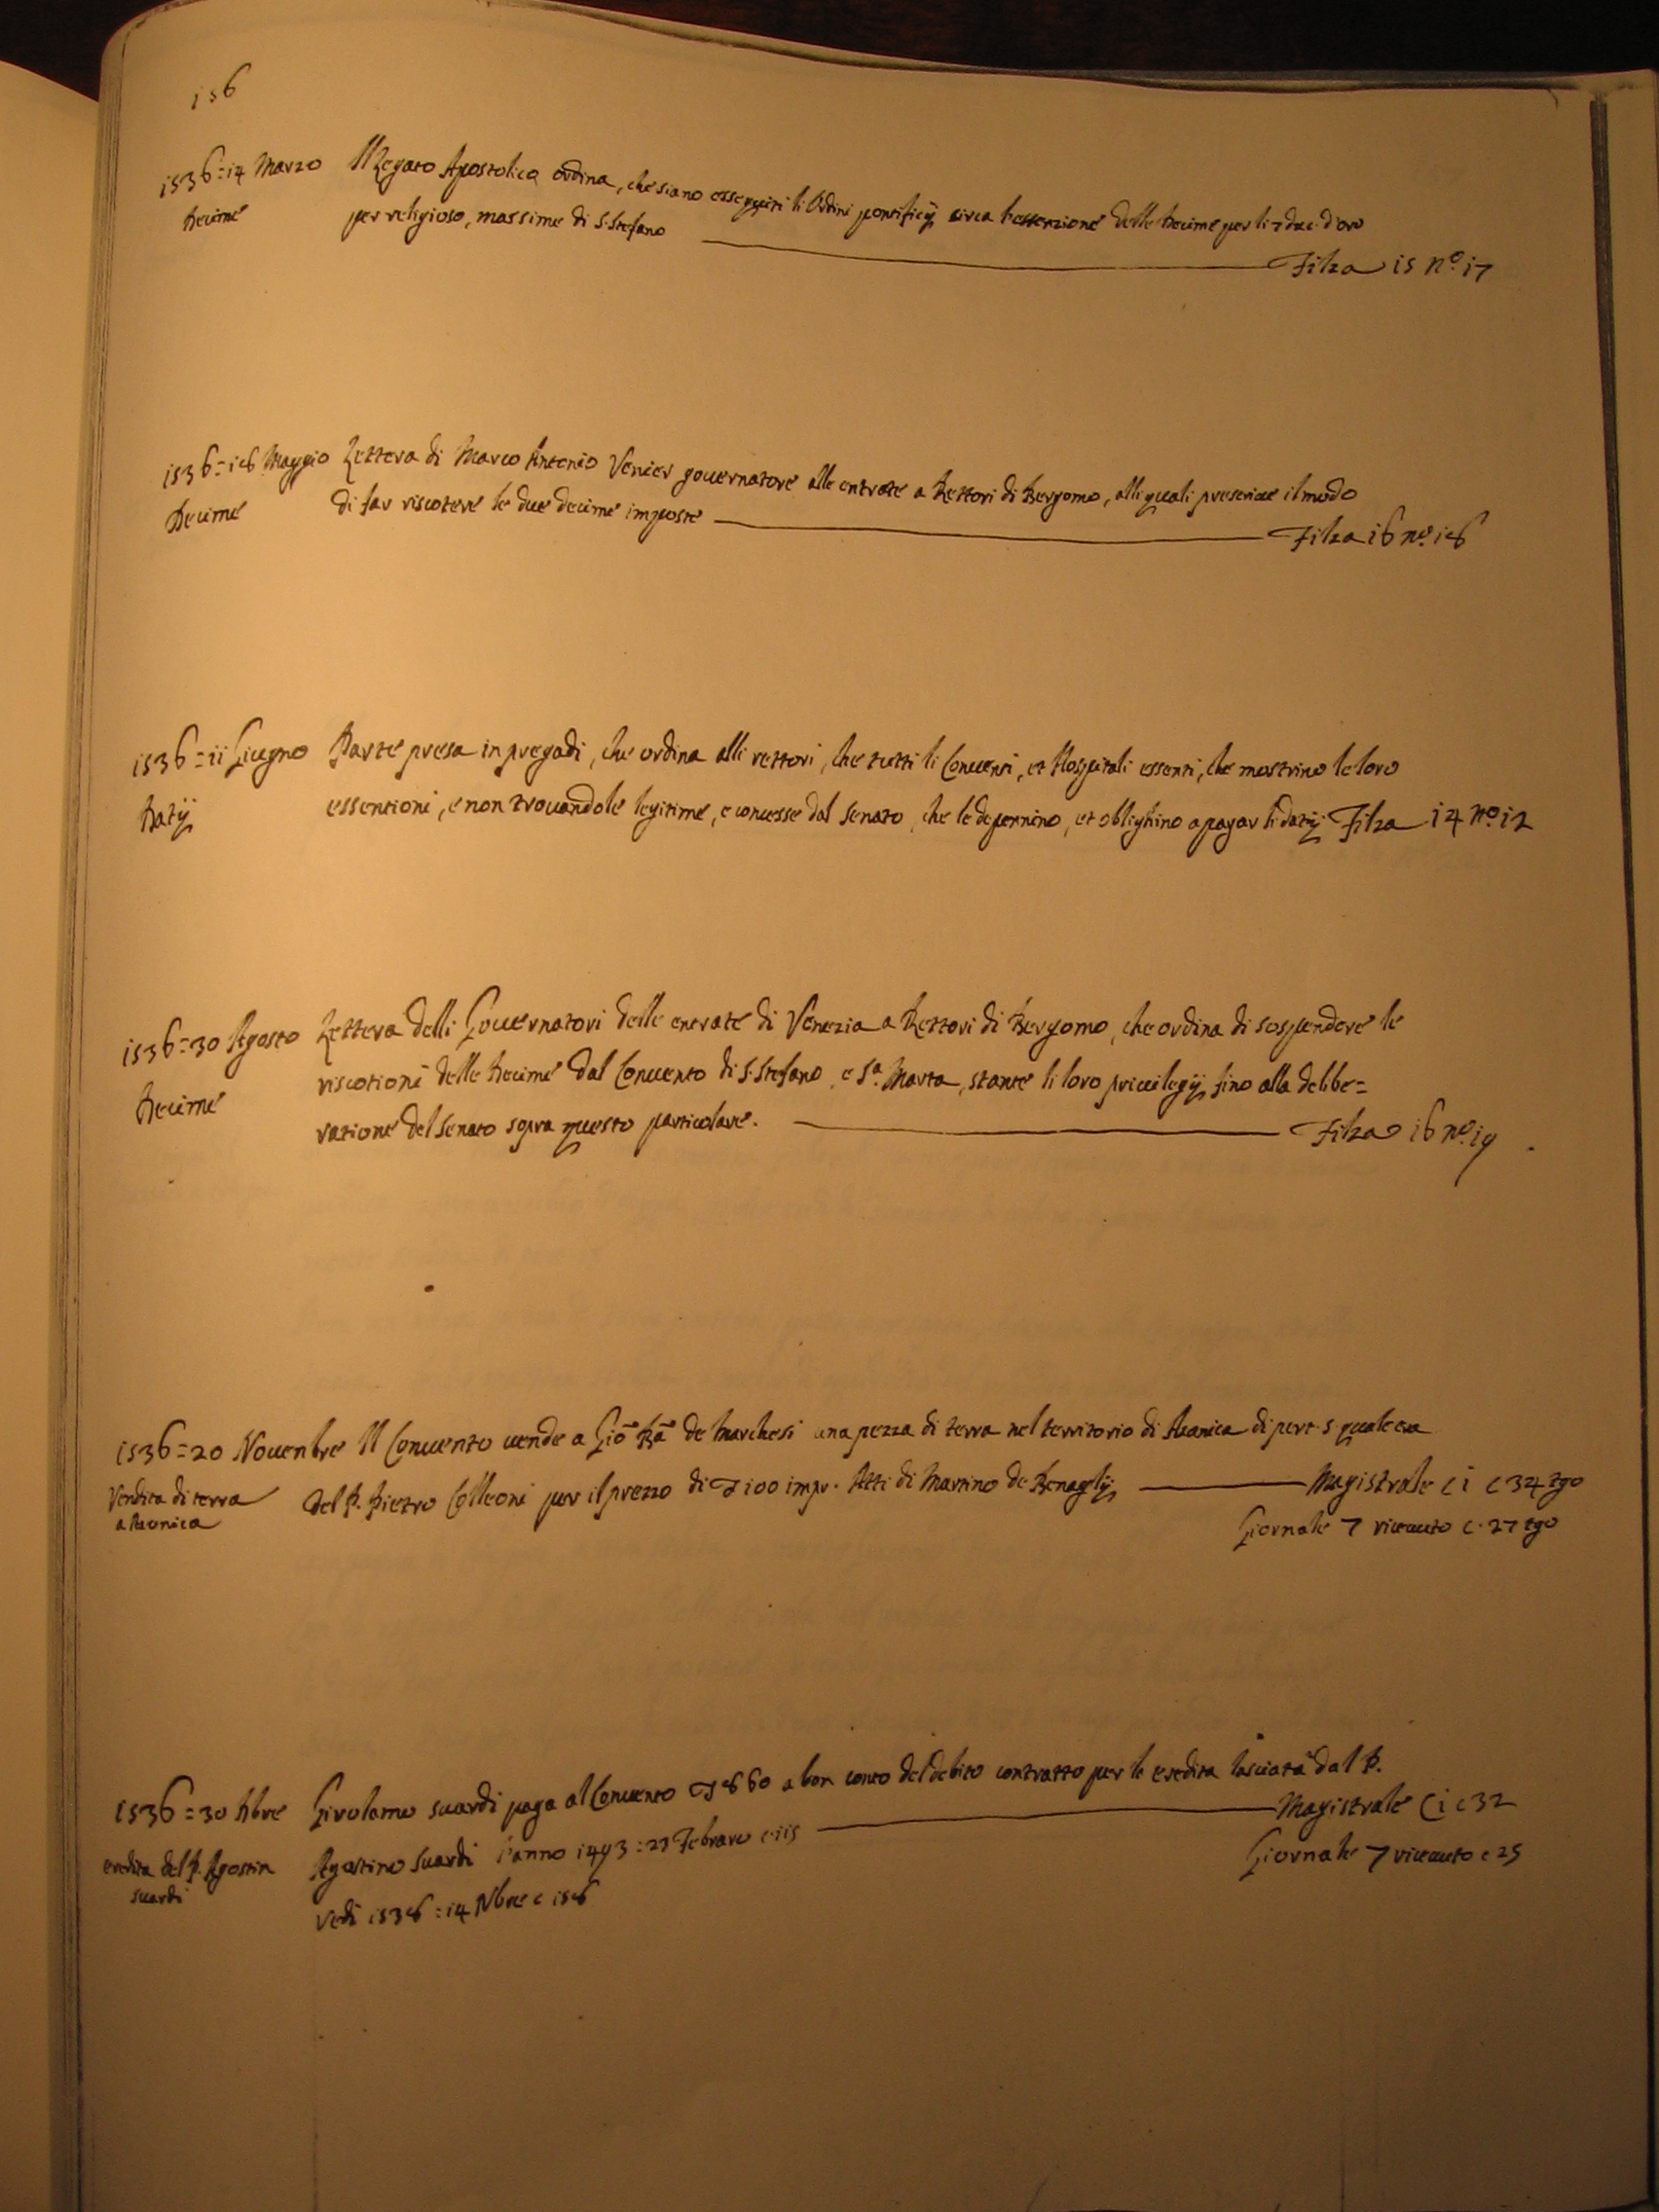 156
1536=14 Marzo Il Legato Apostolico ordina, che siano esseguiti li Ordini pontificij circa l'essenzione delle Decime per li 7 duc. d'oro
Decime per religioso, massime di S. Stefano
Filza 15 nº 17
1536=18 Maggio Lettera di Marco Antonio Venier governatore alle entrate a Rettori di Bergomo, alli quali prescrive il modo
Decime di far riscotere le due decime imposte Filza 16 nº 18
1536=11 Giugno Parte presa in pregadi, che ordina alli rettori, che tutti li Conventi, et Hospitali essenti, che mostrino le loro
Datij essentioni, e non trovandole legitime, e concesse dal Senato, che le depennino, et oblighino a pagar li datij Filza 14 nº 12
1536=30 Agosto Lettera delli Governatori delle entrate di Venezia a Rettori di Bergomo, che ordina di sospendere le
Decime riscotioni delle Decime dal Convento di S. Stefano, e Sª Marta, stante li loro privilegij fino alla delibe=
ratione del Senato sopra questo particolare. Filza 16 nº 19
1536=20 Novembre Il Convento vende a Giō Bā de Marchesi una pezza di terra nel territorio di di pert. 5 quale era
Vendita di terra del P. Pietro Colleoni per il prezzo di 100 impr. Atti di Martino de Benaglij Magistrale C 1 c 34 tgo
a Giornale 7 c. 27 tgo
1536=30 Girolamo Suardi paga al Convento 860 a bon conto del debito contratto per le eredita lasciata dal P.
Magistrale C 1 c 32
eredita del P. Agostin Agostino Suardi l'anno 1493=23 Febraro c. 115
Giornale 7 c 25
Suardi
Vedi 1538=14 Nbre c 158